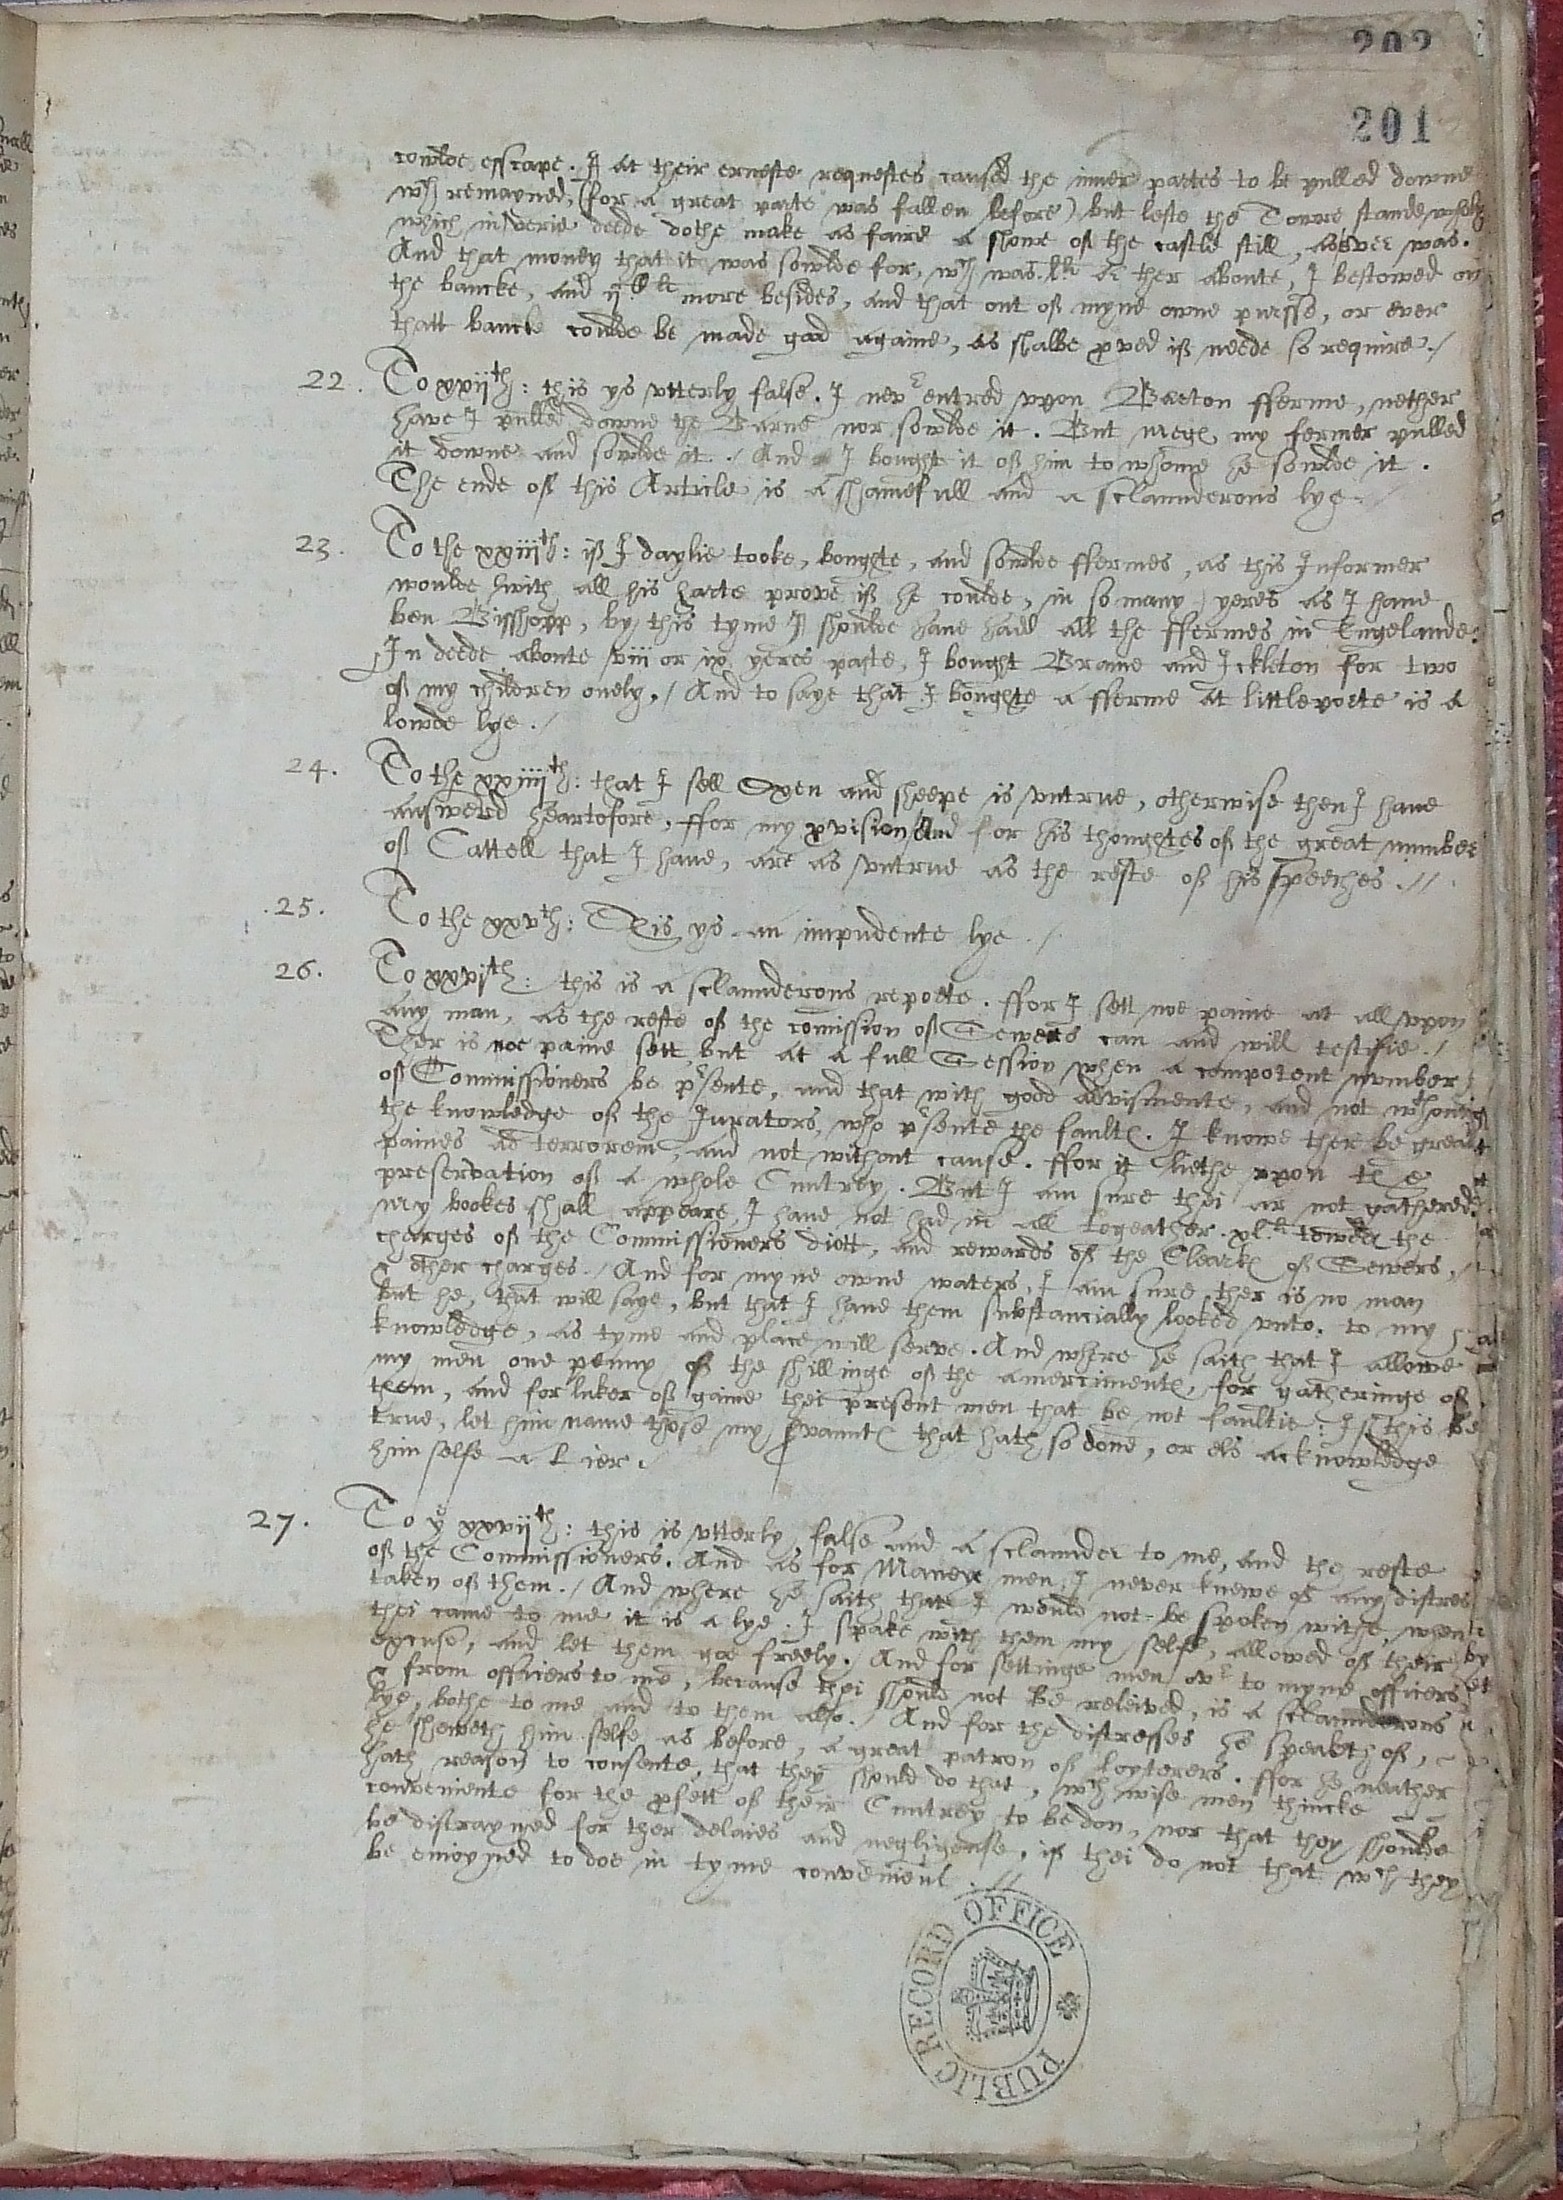 202
201
cowlde esscape. I at their erneste requestes caused the inner partes to be pulled downe
wch remayned, (for a great parte was fallen before) but lefte the Towre stande wholy
which in verie deede dothe make as faire a showe of the castle still, as ever was.
And that money that it was sowlde for, wch was li or ther aboute, I bestowed on
the bancke, and more besides, and that out of myne owne pursse, or ever
thatt bancke cowlde be made good againe, as shalbe pved if neede so require./
22. To xxijth: this ys vtterly false. I nevr entred vpon Barton fferme, nether
have I pulled downe the Barne nor sowlde it. But my fermer pulled
it downe and sowlde it./ And I bought it of him to whome he sowlde it.
The ende of this Article is a shamefull and a sclaunderous lye./
23. To the xxiijth: if I daylie tooke, boughte, and sowlde ffermes, as this Informer
woulde with all his harte prove if he coulde, in so many yeres as I haue
ben Bisshopp, by this tyme I shoulde haue hadd all the ffermes in Engelande:
In deede aboute viii or ix yeres paste, I bought Brame and Ickleton for two
of my children onely./ And to saye that I boughte a fferme at littleporte is a
lowde lye./
24. To the xxiiijth: that I sell Oxen and sheepe is vntrue, otherwise then I haue
answerd heartofore, ffor my pvision/ And for his thoughtes of the great number
of Cattell that I haue, are as vntrue as the reste of his speeches.//
.25. To the xxvth: This ys an impudente lye./
26. To xxvjth: this is a sclaunderous reporte. ffor I sett noe paine at all vpon
any man, as the reste of the comission of Sewers can and will testifie./
Ther is noe paine sett but at a full Session when a competent number
of Commissioners be prsente, and that with good advismente, and not wthout
the knowledge of the Jurators, who prsente the faultes. I knowe ther be great
paines ad terrorem, and not without cause. ffor it liethe vpon the
preservation of a whole Cuntrey. But I am sure thei ar not gathered:
my bookes shall appeare, I haue not had in all togeather xl li towards the
charges of the Commissioners diott, and rewards of the Clearkes of Sewers,
& other charges./ And for myne owne waters, I am sure ther is no man
but he, that will saye, but that I haue them substancially looked vnto, to my
knowledge, as tyme and place will serve. And where he saith that I allowe
my men one penny of the shillinge of the amercimentes, for gatheringe of
them, and for luker of gaine thei present men that be not faultie: If this be
true, let him name those my servauntes that hath so done, or els acknowledge
him selfe a Lier.
27. To ye xxvijth: this is vtterly false and a sclaunder to me, and the reste
of the Commissioners. And as for Maneye men, I never knewe of any distres
taken of them./ And where he saith that I would not be spoken withe, when
thei came to me it is a lye: I spake with them my selfe, allowed of their
excuse, and let them goe freely./ And for settinge men ovr to myne officers
& from officiers to me, because thei should not be releived, is a sclaunderous
lye, bothe to me and to them also./ And for the distresses he speaketh of,
he sheweth him selfe as before, a great patron of loyterers. ffor he neather
hath reason to consente, that they should do that, wch wise men thincke
conveniente for the pfett of their Cuntrey to be don, nor that they shoulde
be distrayned for ther delaies and negligense, if thei do not that wch they
be enioyned to doe in tyme convenient.//
PUBLIC RECORD OFFICE